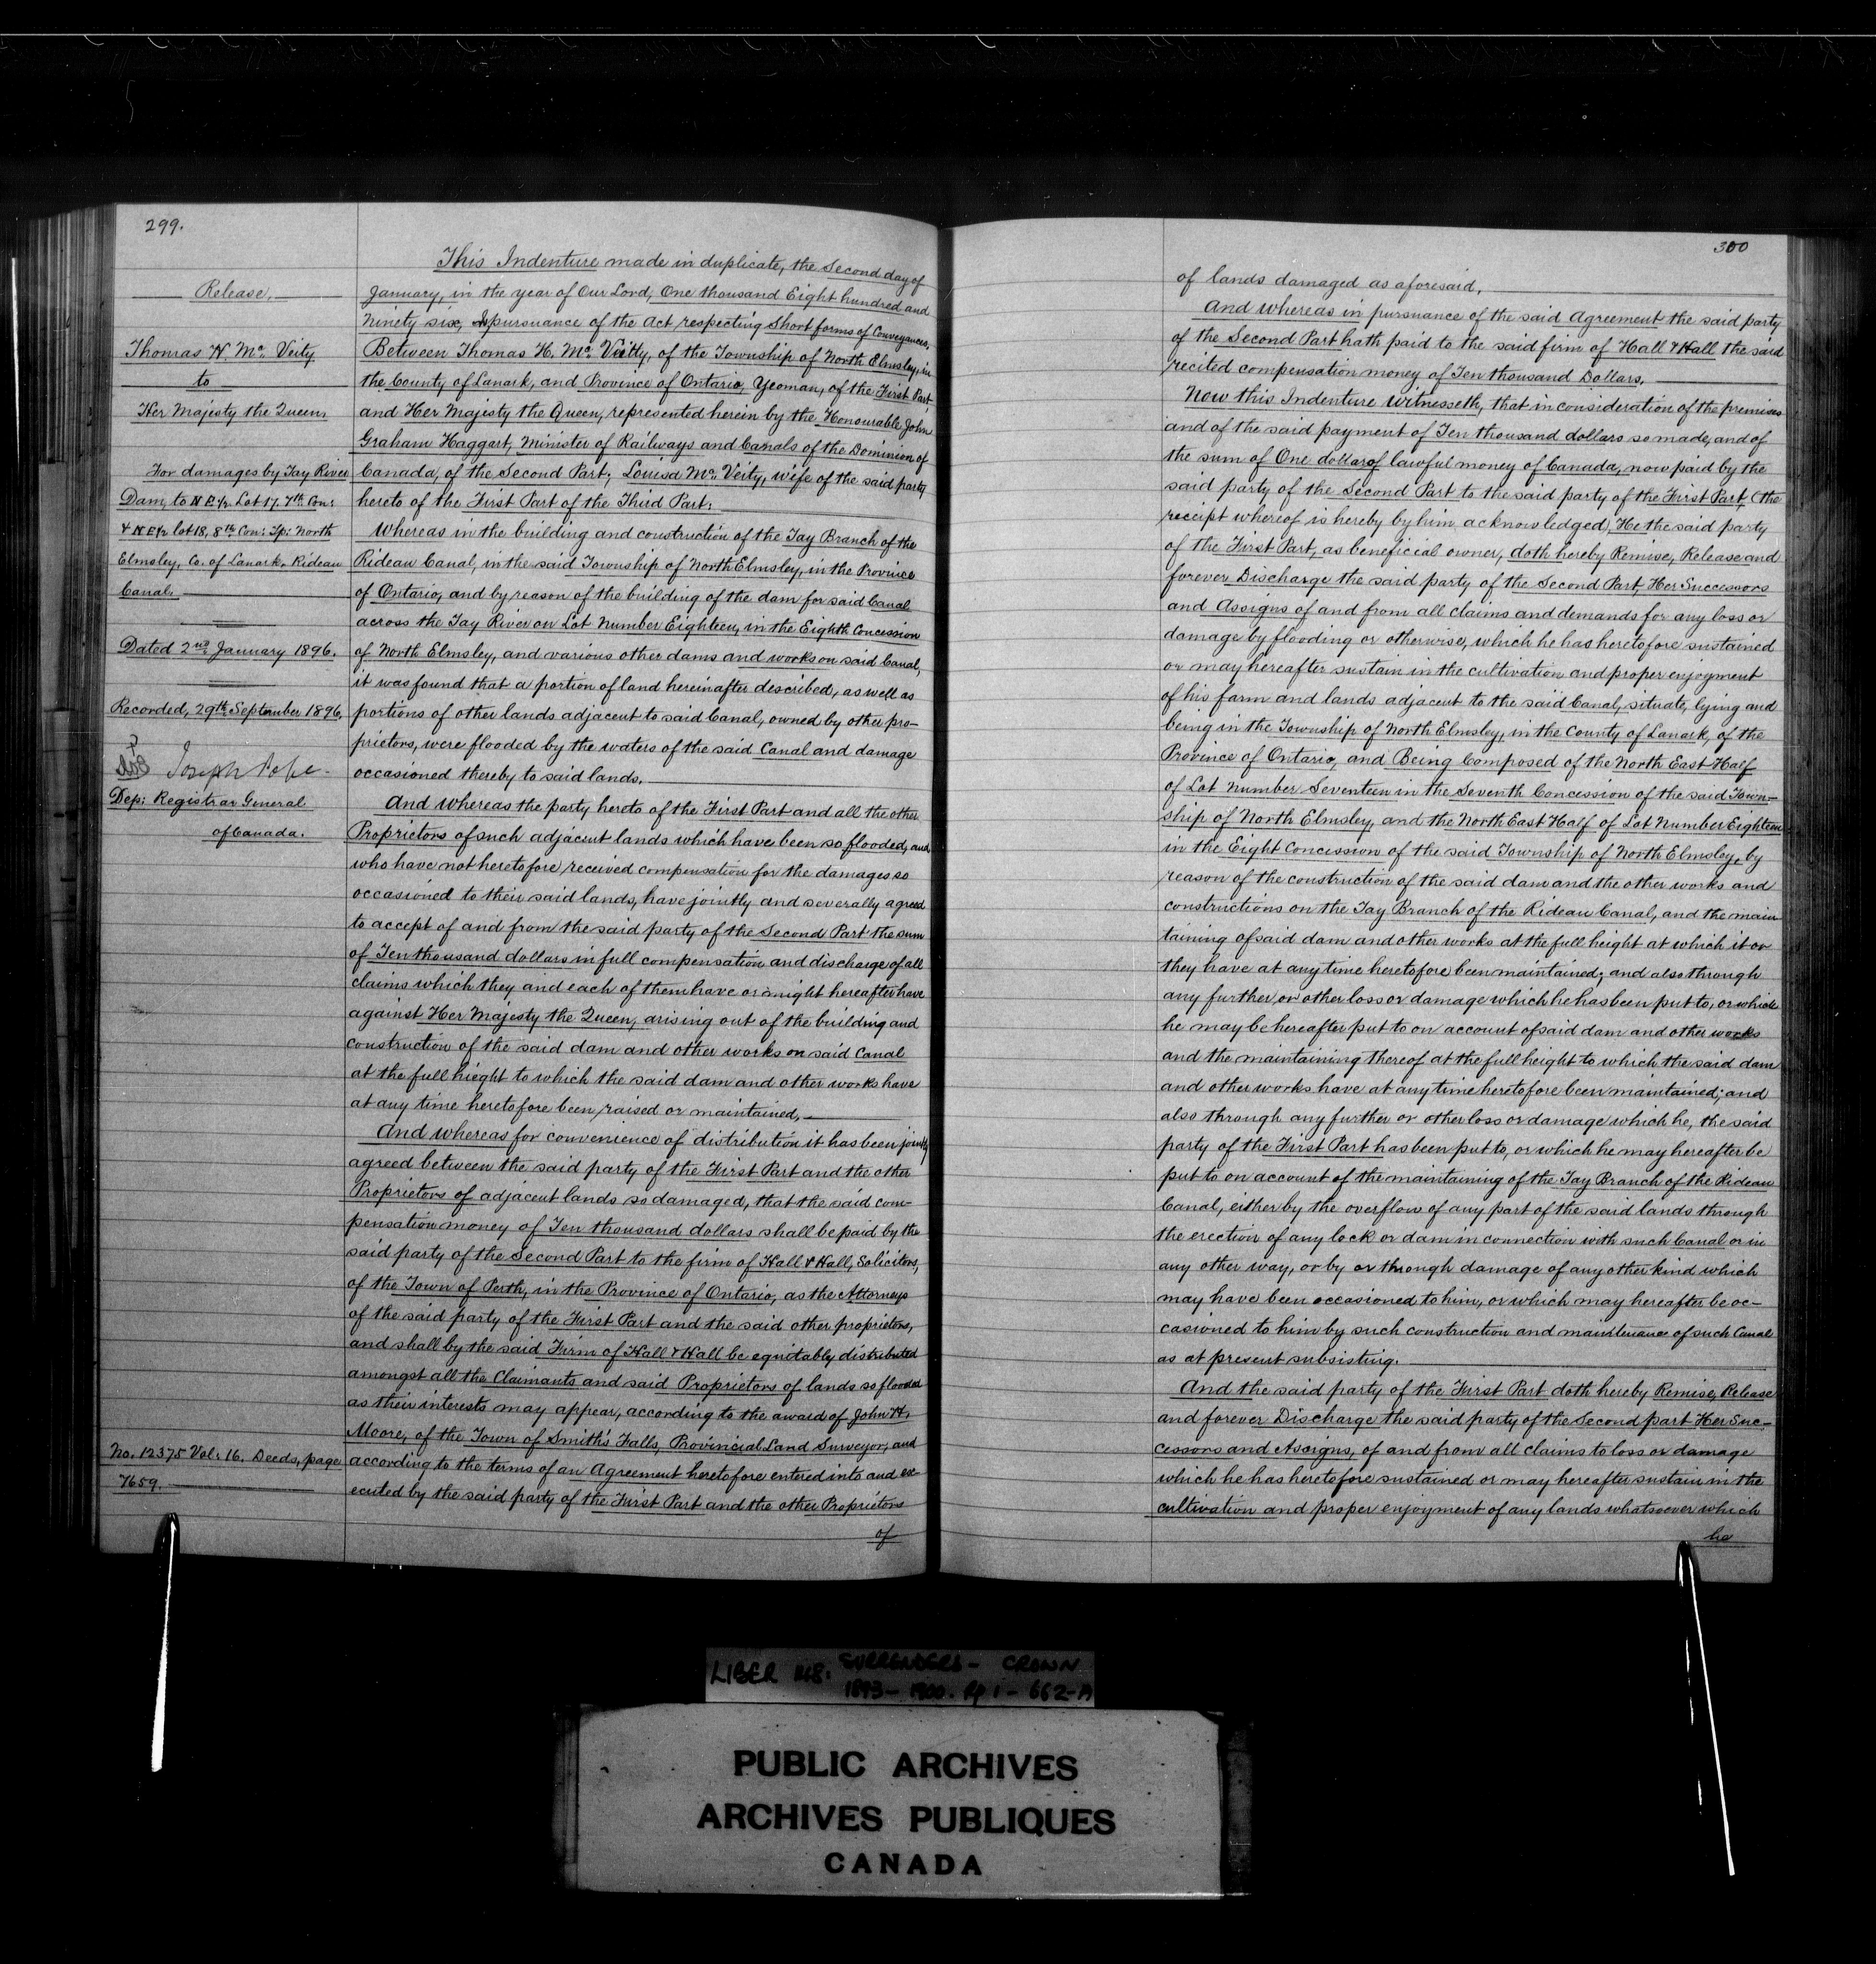 299.
Release,
Thomas H. Mc. Veity
to
Her Majesty the Queen,
For damages by Tay River
Dam, to N E ½ Lot 17. 7th Con:
& N E ½ lot 18, 8th Con: Tp: North
Elmsley, Co. of Lanark, Rideau
Canal.
Dated 2nd January 1896.
Recorded, 29th September 1896,
Joseph Pope.
Dep: Registrar General
of Canada.
No. 12375 Vol: 16. Deeds, page
7659.
This Indenture made in duplicate, the Second day of
January, in the year of Our Lord, One thousand Eight hundred and
Ninety six, In pursuance of the Act respecting Short forms of Conveyances,
Between Thomas H. Mc. Veitty, of the Township of North Elmsley, in
the County of Lanark, and Province of Ontario, Yeoman, of the First Part,
and Her Majesty the Queen, represented herein by the Honourable John
Graham Haggart, Minister of Railways and Canals of the Dominion of
Canada, of the Second Part, Louisa Mc. Veity, wife of the said party
hereto of the First Part of the Third Part:
Whereas in the building and construction of the Tay Branch of the
Rideau Canal, in the said Township of North Elmsley, in the Province
of Ontario, and by reason of the building of the dam for said Canal
across the Tay River on Lot Number Eighteen, in the Eighth Concession
of North Elmsley, and various other dams and works on said Canal,
it was found that a portion of land hereinafter described, as well as
portions of other lands adjacent to said Canal, owned by other pro-
prietors, were flooded by the waters of the said Canal and damage
occasioned thereby to said lands.
And whereas the party hereto of the First Part and all the other
Proprietors of such adjacent lands which have been so flooded, and
who have not heretofore received compensation for the damages so
occasioned to their said lands, have jointly and severally agreed
to accept of and from the said party of the Second Part the sum
of Ten thousand dollars in full compensation and discharge of all
claims which they and each of them have or might hereafter have
against Her Majesty the Queen, arising out of the building and
construction of the said dam and other works on said Canal
at the full hieght to which the said dam and other works have
at any time heretofore been raised or maintained,
And whereas for convenience of distribution it has been jointly
agreed between the said party of the First Part and the other
Proprietors of adjacent lands so damaged, that the said com-
pensation money of Ten thousand dollars shall be paid by the
said party of the Second Part to the firm of Hall & Hall, Solicitors,
of the Town of Perth, in the Province of Ontario, as the Attorneys
of the said party of the First Part and the said other proprietors,
and shall by the said Firm of Hall & Hall be equitably distributed
amongst all the Claimants and said Proprietors of lands so flooded
as their interests may appear, according to the award of John H.
Moore, of the Town of Smith's Falls, Provincial Land Surveyor, and
according to the terms of an Agreement heretofore entered into and ex-
ecuted by the said party of the First Part and the other Proprietors
of
300
of lands damaged as aforesaid.
And whereas in pursuance of the said Agreement the said party
of the Second Part hath paid to the said firm of Hall & Hall the said
recited compensation money of Ten thousand Dollars.
Now this Indenture witnesseth, that in consideration of the premises
and of the said payment of Ten thousand dollars so made, and of
the sum of One dollar of lawful money of Canada, now paid by the
said party of the Second Part to the said party of the First Part, (the
receipt whereof is hereby by him acknowledged), He the said party
of the First Part, as beneficial owner, doth hereby Remise, Release and
forever Discharge the said party of the Second Part, Her Successors
and Assigns of and from all claims and demands for any loss or
damage by flooding or otherwise, which he has heretofore sustained
or may hereafter sustain in the cultivation and proper enjoyment
of his farm and lands adjacent to the said Canal, situate, lying and
being in the Township of North Elmsley, in the County of Lanark, of the
Province of Ontario, and Being Composed of the North East Half
of Lot Number Seventeen in the Seventh Concession of the said Town-
ship of North Elmsley, and the North East Half of Lot Number Eighteen
in the Eight Concession of the said Township of North Elmsley, by
reason of the construction of the said dam and the other works and
constructions on the Tay Branch of the Rideau Canal, and the main
taining of said dam and other works at the full height at which it or
they have at any time heretofore been maintained; and also through
any further or other loss or damage which he has been put to, or which
he may be hereafter put to on account of said dam and other works
and the maintaining thereof at the full height to which the said dam
and other works have at any time heretofore been maintained; and
also through any further or other loss or damage which he, the said
party of the First Part has been put to, or which he may hereafter be
put to on account of the maintaining of the Tay Branch of the Rideau
Canal, either by the overflow of any part of the said lands through
the erection of any lock or dam in connection with such Canal or in
any other way, or by or through damage of any other kind which
may have been occasioned to him, or which may hereafter be oc-
casioned to him by such construction and maintenance of such Canal
as at present subsisting.
And the said party of the First Part doth hereby Remise, Release
and forever Discharge the said party of the Second part Her Suc-
cessors and Assigns, of and from all claims to loss or damage
which he has heretofore sustained or may hereafter sustain in the
cultivation and proper enjoyment of any lands whatsoever which
he
LIBER 148. SURRENDERS - CROWN
1893-1900. Pp 1-662-A
PUBLIC ARCHIVES
ARCHIVES PUBLIQUES
CANADA